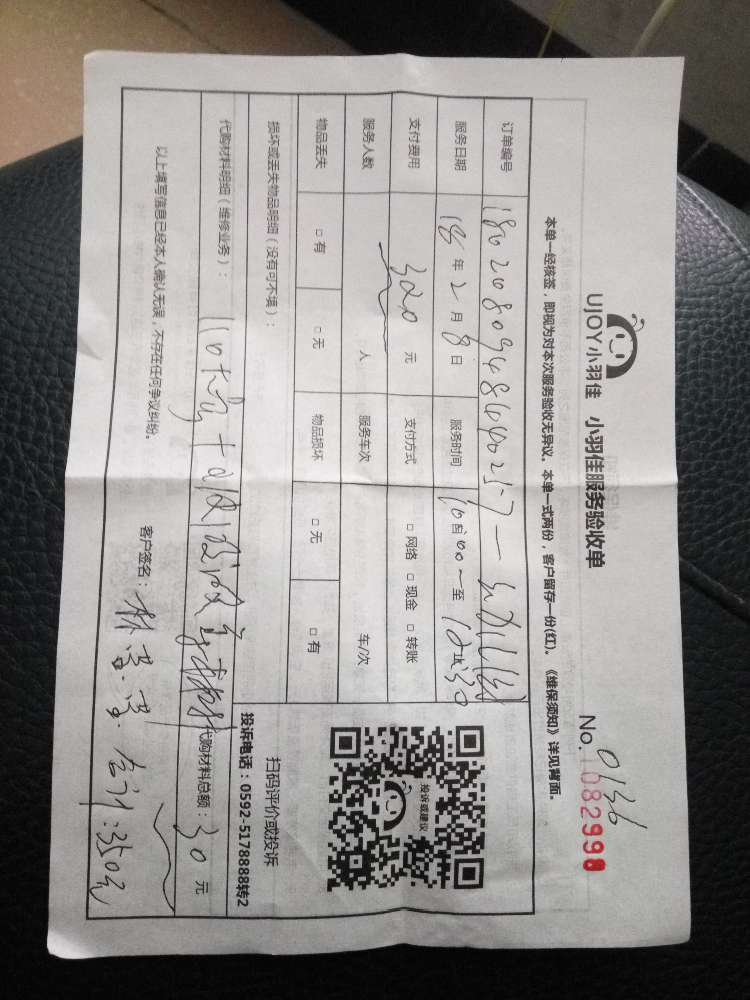 UJOY小羽佳 小羽佳服务验收单
No. 1082998
0136
本单一经核签，即视为对本次服务验收无异议。本单一式两份，客户留存一份(红)。《维保须知》详见背面。
订单编号
服务日期 18 年 2 月 8 日 服务时间 10:00~至 12:30
支付费用 320 元 支付方式 □ 网络 □ 现金 □ 转账
服务人数 人 服务车次 车/次
物品丢失 □ 有 □ 无 物品损坏 □ 无 □ 有
损坏或丢失物品明细（没有可不填）：
代购材料明细（维修业务）：
代购材料总额：30 元
以上填写信息已经本人确认无误，不存在任何争议纠纷。
客户签名：林 合计:350元
投诉或建议
扫码评价或投诉
投诉电话：0592-5178888转2